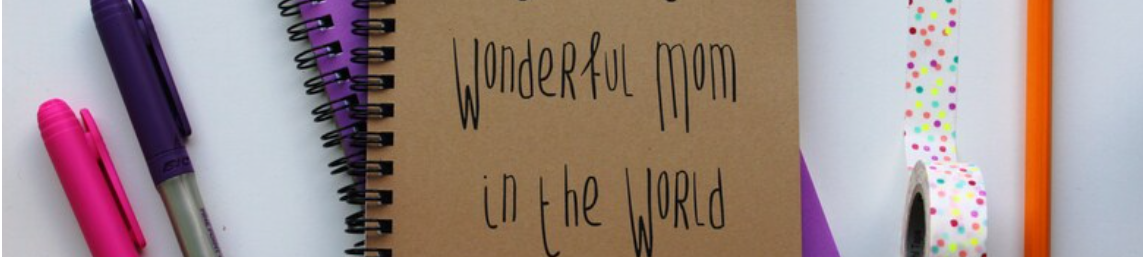 wonderful mom
in the world
BIC